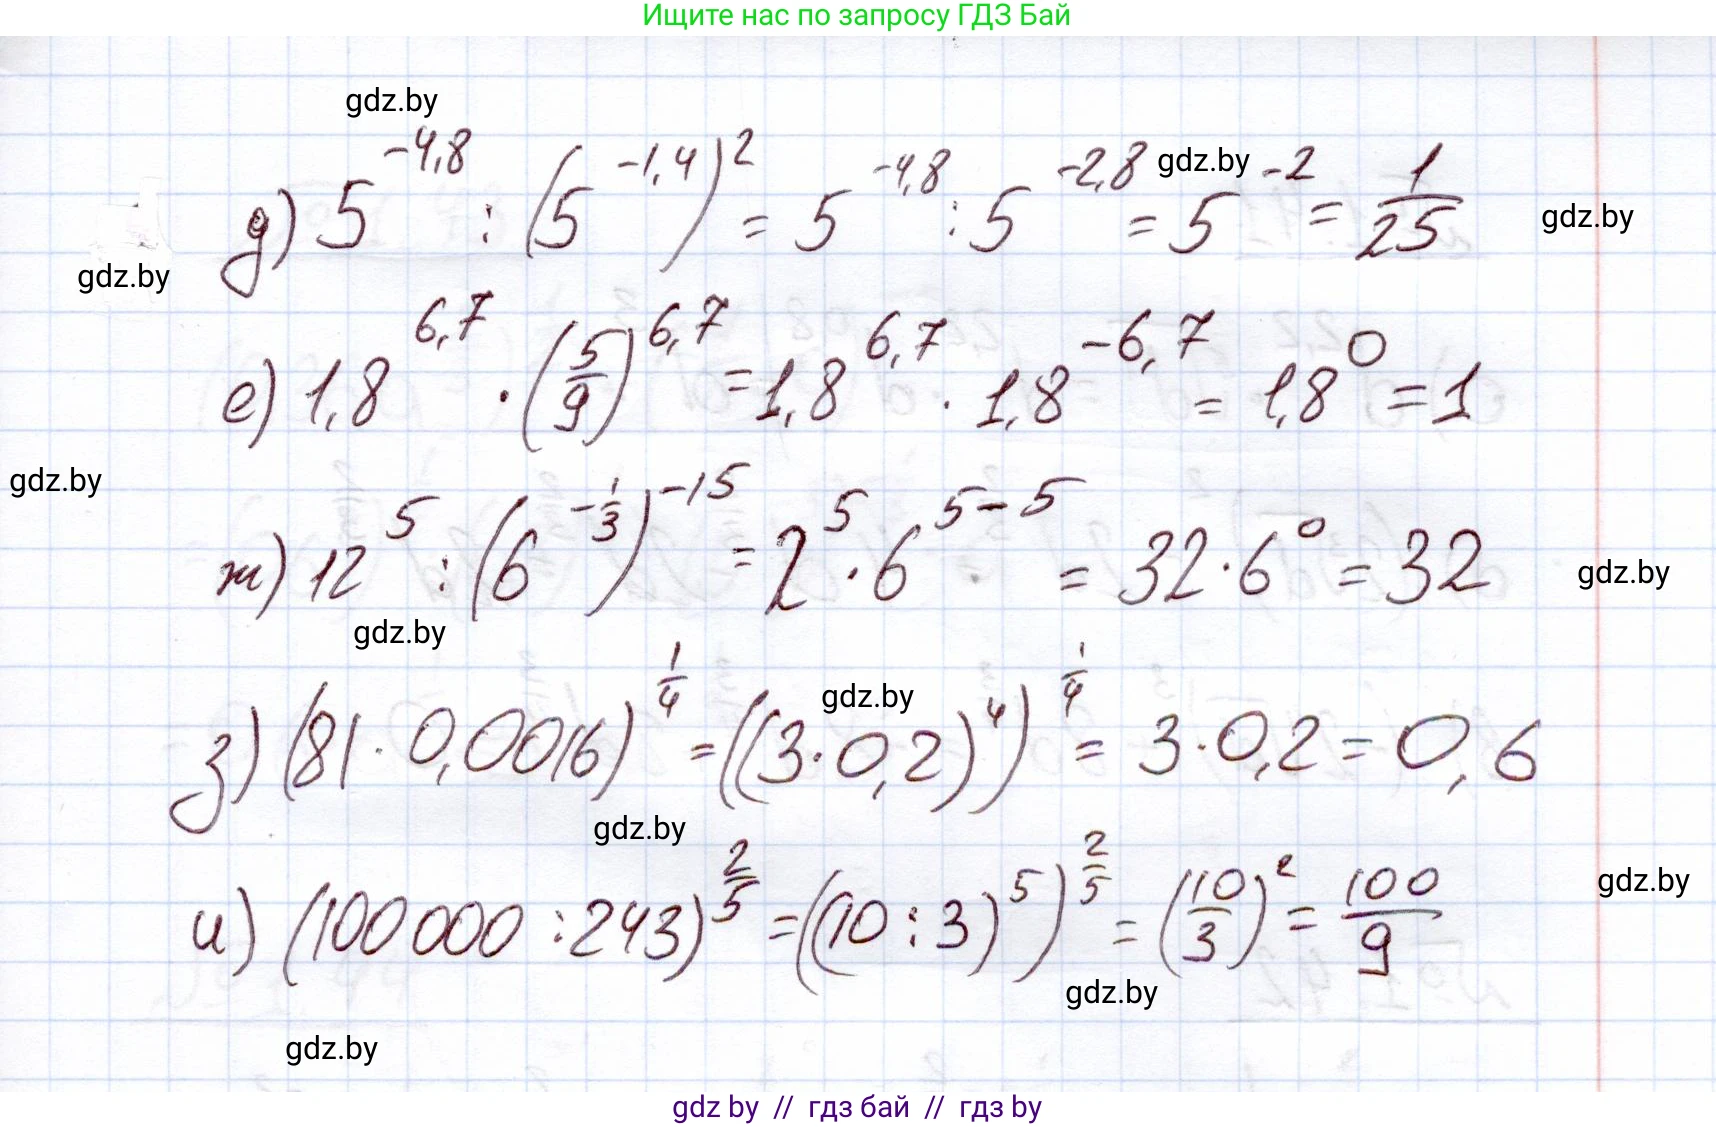 Ищите нас по запросу ГДЗ Бай
gdz.by
д) 5^{-4,8} : (5^{-1,4})^2 = 5^{-4,8} : 5^{-2,8} = 5^{-2} = 1/25
gdz.by
gdz.by
gdz.by
е) 1,8^{6,7} · (5/9)^{6,7} = 1,8^{6,7} · 1,8^{-6,7} = 1,8^0 = 1
gdz.by
ж) 12^5 : (6^{-1/3})^{-15} = 2^5 · 6^{5-5} = 32 · 6^0 = 32
gdz.by
gdz.by
з) (81 · 0,0016)^{1/4} = ((3 · 0,2)^4)^{1/4} = 3 · 0,2 = 0,6
gdz.by
gdz.by
и) (100 000 : 243)^{2/5} = ((10 : 3)^5)^{2/5} = (10/3)^2 = 100/9
gdz.by
gdz.by
gdz.by
gdz by // гдз бай // гдз by